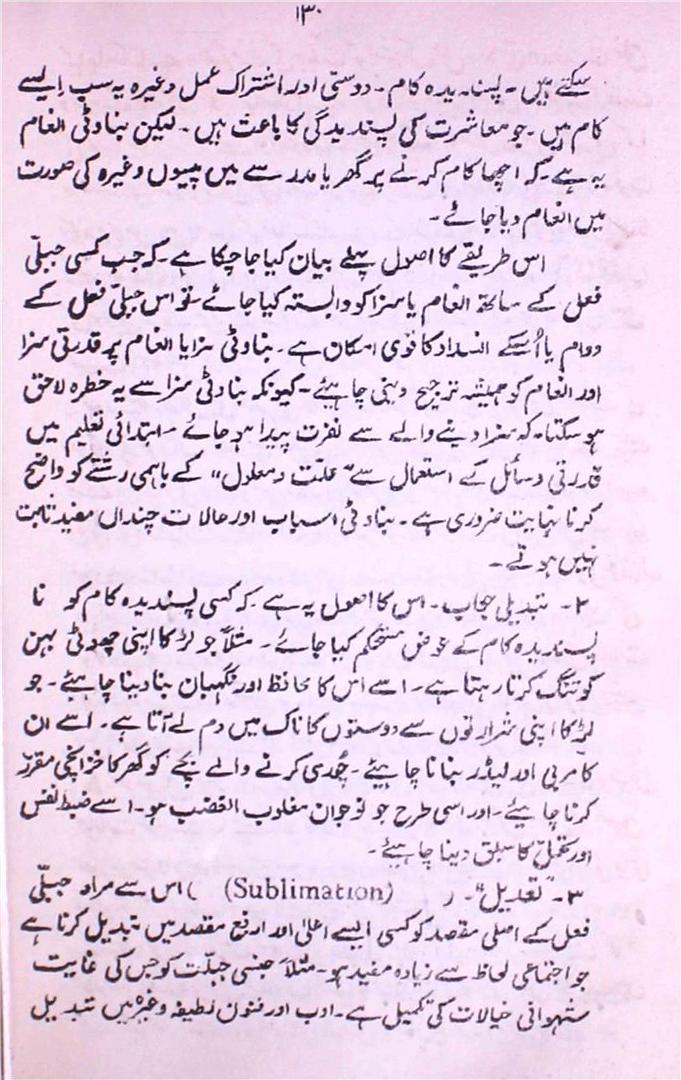 ۱۳۰
سکتے ہیں ۔ پسندیدہ کام ۔ دوستی اور اشتراک عمل وغیرہ یہ سب ایسے
کام ہیں ۔ جو معاشرت کی پسندیدگی کا باعث ہیں ۔ لیکن بناوٹی انعام
یہ ہے ۔ کہ اچھا کام کرنے پر گھر یا مدرسے میں پیسوں وغیرہ کی صورت
میں انعام دیا جائے ۔
اس طریقے کا اصول پہلے بیان کیا جا چکا ہے ۔ کہ جب کسی جبلّی
فعل کے ساتھ انعام یا سزا کو وابستہ کیا جائے ۔ تو اس جبلّی فعل کے
دوام یا اُسکے انسداد کا قوی امکان ہے ۔ بناوٹی سزا یا انعام پر قدرتی سزا
اور انعام کو ہمیشہ ترجیح دینی چاہیئے ۔ کیونکہ بناوٹی سزا سے یہ خطرہ لاحق
ہو سکتا ۔ کہ سزا دینے والے سے نفرت پیدا ہو جائے ۔ ابتدائی تعلیم میں
قدرتی وسائل کے استعمال سے “علت و معلول” کے باہمی رشتے کو واضح
کرنا نہایت ضروری ہے ۔ بناوٹی اسباب اور حالات چنداں مفید ثابت
نہیں ہوتے ۔
۲۔ تبدیلی حجاب ۔ اس کا اصول یہ ہے ۔ کہ کسی پسندیدہ کام کو نا
پسندیدہ کام کے عوض مستحکم کیا جائے ۔ مثلاً جو لڑکا اپنی چھوٹی بہن
کو تنگ کرتا رہتا ہے ۔ اسے اس کا محافظ اور نگہبان بنا دینا چاہیئے ۔ جو
لڑکا اپنی شرارتوں سے دوستوں کا ناک میں دم لے آتا ہے ۔ اسے ان
کا مربی اور لیڈر بنانا چاہیئے ۔ چوری کرنے والے بچے کو گھر کا خزانچی مقرر
کرنا چاہیئے ۔ اور اسی طرح جو نوجوان مغلوب الغضب ہو ۔ اسے ضبط نفس
اور تحمل کا سبق دینا چاہیئے ۔
۳۔ تعدیل” ۔ ر (Sublimation) ) اس سے مراد جبلّی
فعل کے اصلی مقصد کو کسی ایسے اعلیٰ اور ارفع مقصد میں تبدیل کرنا ہے
جو اجتماعی لحاظ سے زیادہ مفید ہو ۔ مثلاً جنسی جبلّت کو جس کی غایت
شہوانی خیالات کی تکمیل ہے ۔ ادب اور فنون لطیفہ وغیرہ میں تبدیل